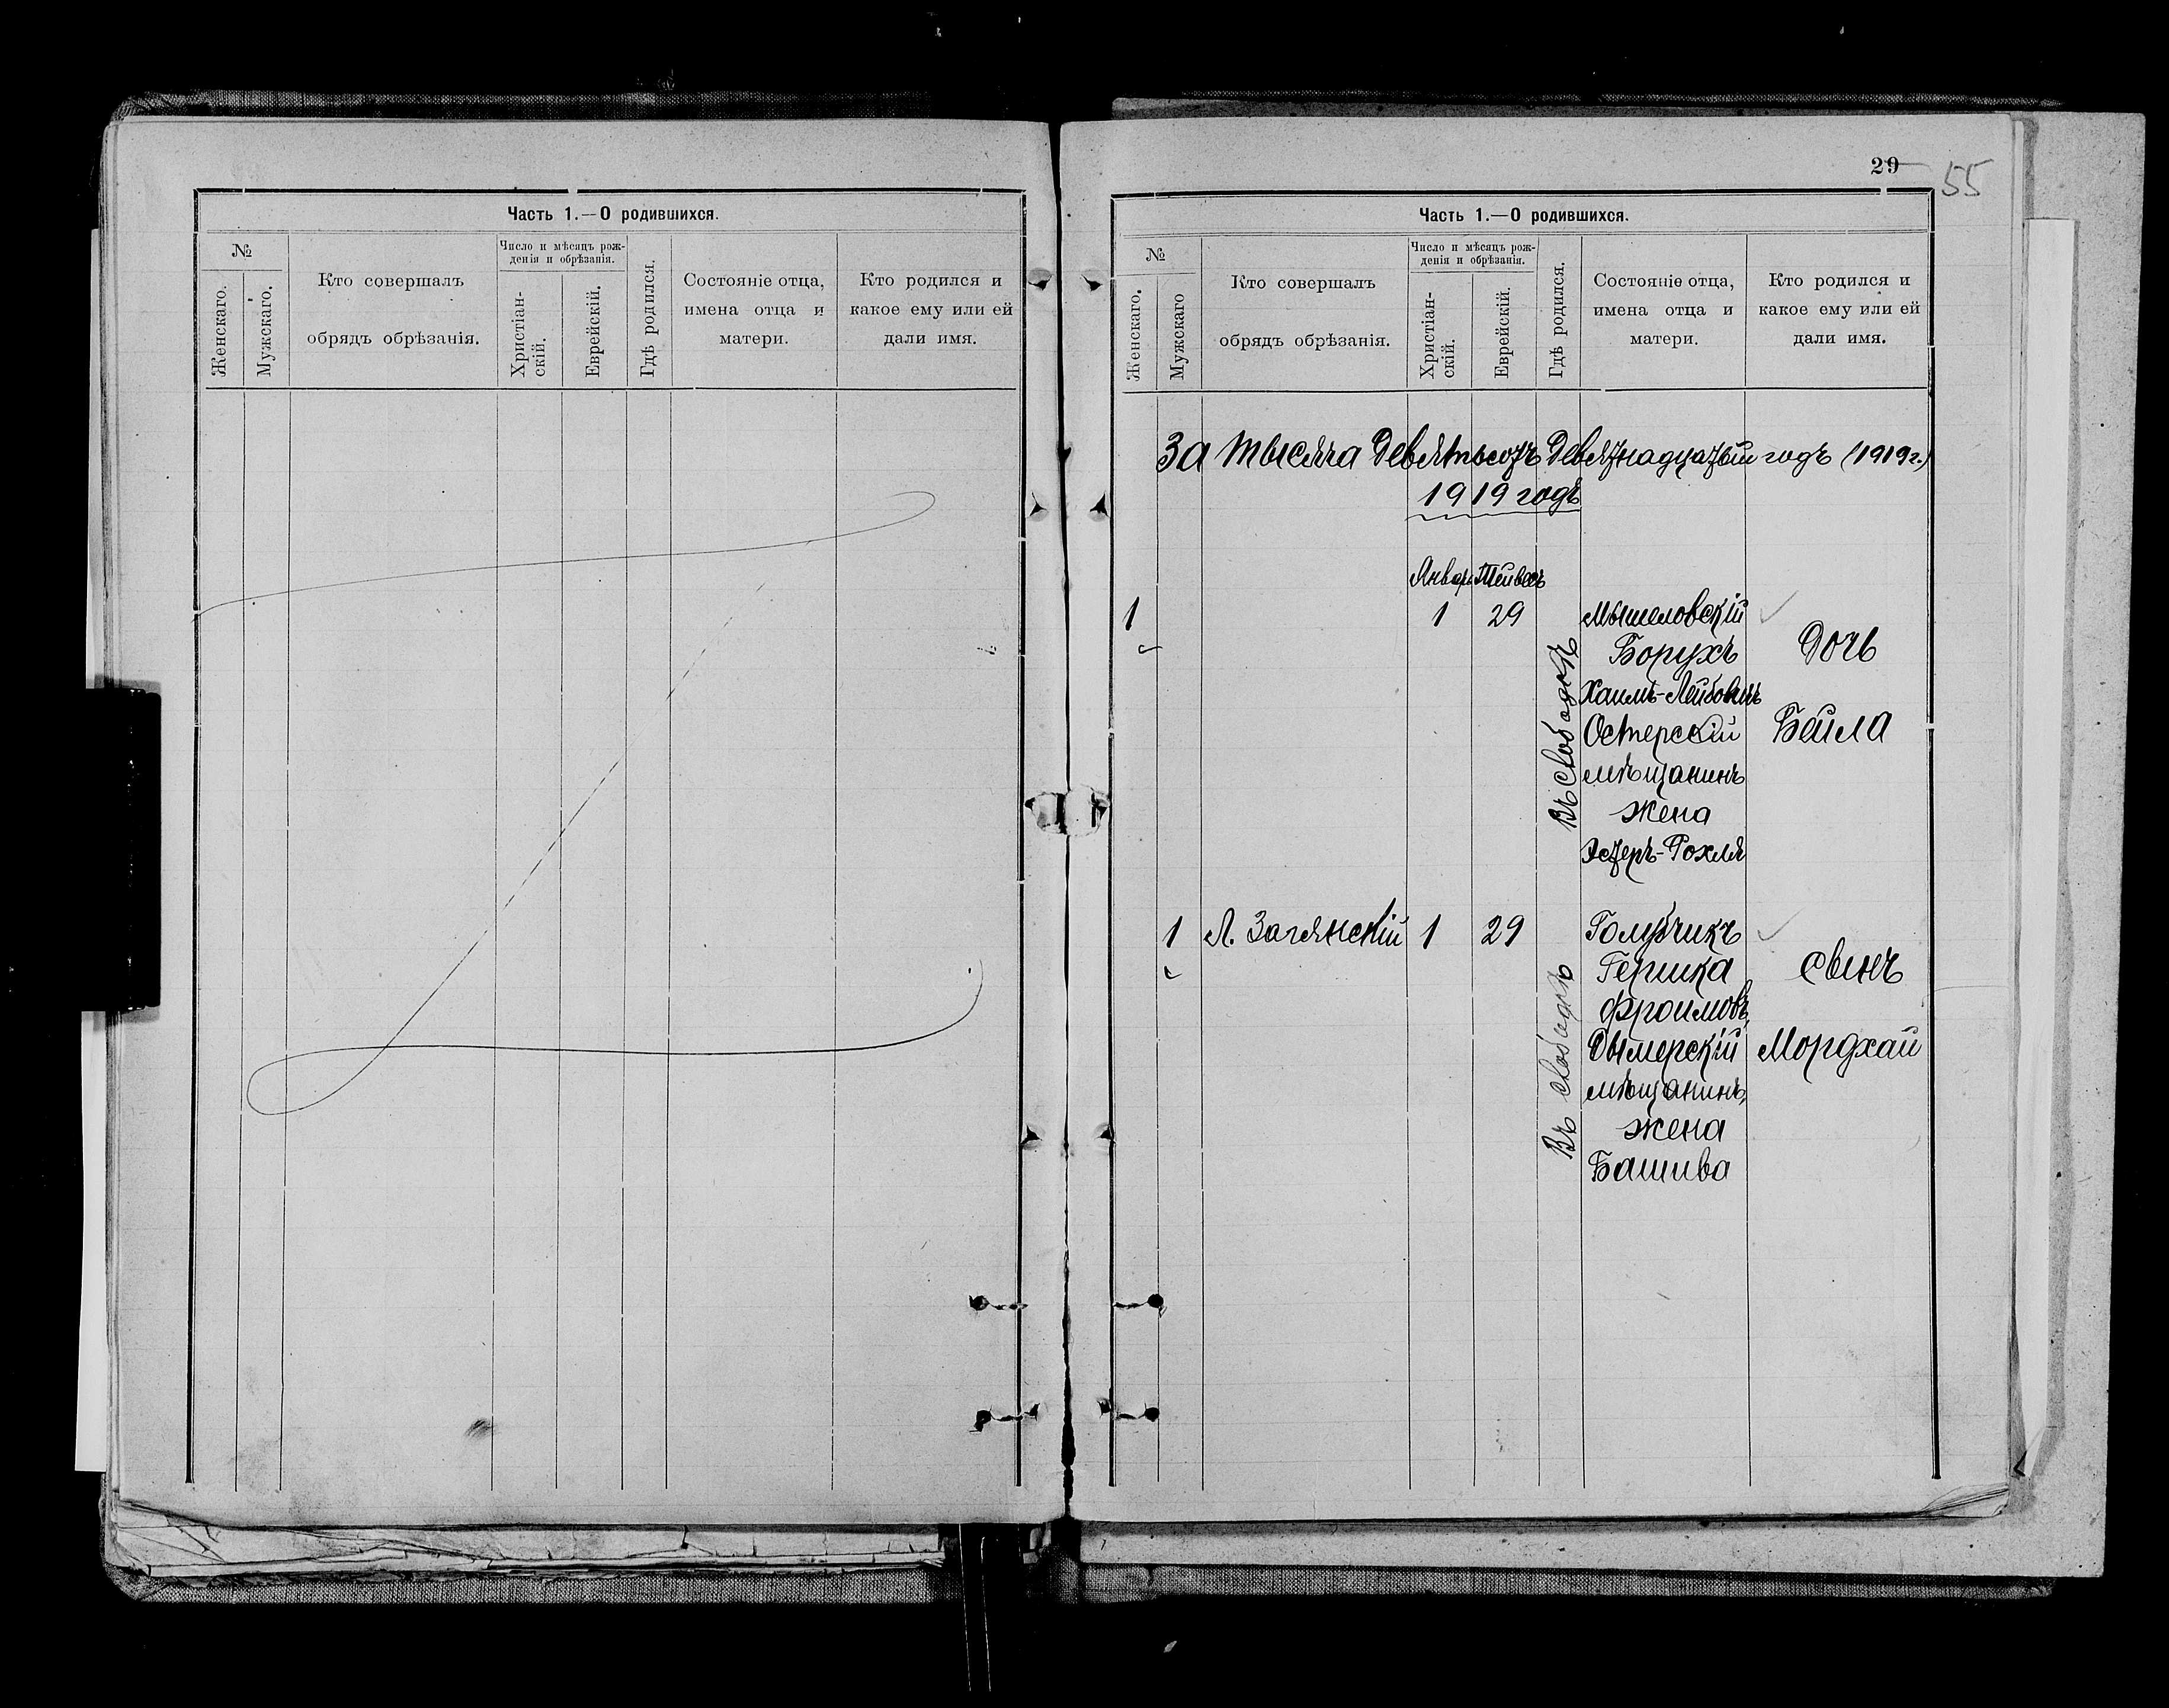 Часть 1.—О родившихся.
№
Женскаго.
Мужскаго.
Кто совершалъ
обрядъ обрѣзанія.
Число и мѣсяцъ рож-
денія и обрѣзанія.
Христіан-
скій.
Еврейскій.
Гдѣ родился.
Состояніе отца,
имена отца и
матери.
Кто родился и
какое ему или ей
дали имя.
29
55
Часть 1.—О родившихся.
№
Женскаго.
Мужскаго
Кто совершалъ
обрядъ обрѣзанія.
Число и мѣсяцъ рож-
денія и обрѣзанія.
Христіан-
скій.
Еврейскій.
Гдѣ родился.
Состояніе отца,
имена отца и
матери.
Кто родился и
какое ему или ей
дали имя.
За тысяча девятьсотъ девятнадцатый годъ (1919 г.)
1919 годъ
1
1
29
Въ слободкѣ
Мышеловскій
Борухъ
Хаимъ-Лейбовичъ
Остерскій
мѣщанинъ
жена
Эстеръ-Рохля
Дочь
Бейла
1
Л.
1
29
Въ слободкѣ
Голубчикъ
Гершка
Фроимовъ,
Дымерскій
мѣщанинъ,
жена
Башива
сынъ
Мордхай